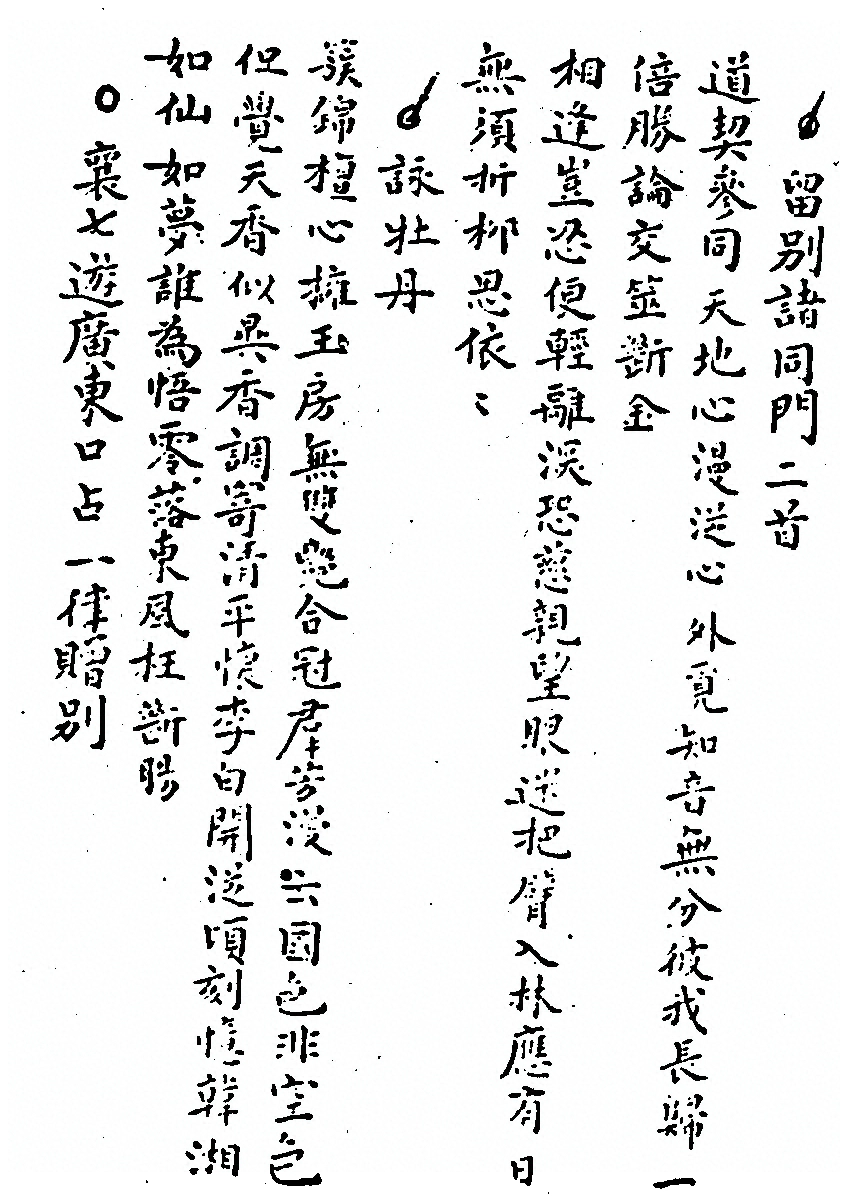 留別諸同門二首
道契參同天地心漫從心外覓知音無分彼我長歸一
倍勝論交並斷金
相逢豈恣便輕離深恐慈親望眼迷把臂入林應有日
無須折柳思依〻
詠牡丹
簇錦檀心擁玉房無雙艷合冠群芳漫云國色非空色
但覺天香似異香調寄清平懷李白開從頃刻憶韓湘
如仙如夢誰為悟零落東風枉斷腸
襄七遊廣東口占一律贈別